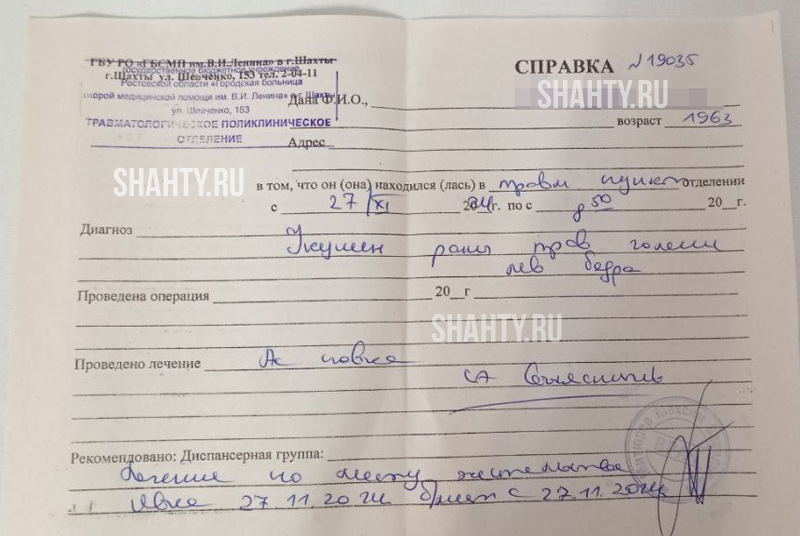 ГБУ РО «ГБСМП им.В.И.Ленина» в г.Шахты
г.Шахты ул. Шевченко, 153 тел. 2-04-11
государственное бюджетное учреждение
Ростовской области «Городская больница
скорой медицинской помощи им. В.И. Ленина» в г. Шахты
ул. Шевченко, 153
ТРАВМАТОЛОГИЧЕСКОЕ ПОЛИКЛИНИЧЕСКОЕ
ОТДЕЛЕНИЕ
СПРАВКА №19035
SHAHTY.RU
Дана Ф.И.О.,
возраст 1963
Адрес
SHAHTY.RU
в том, что он (она) находился (лась) в травм пункт отделении
с 27/XI 2024г. по с 8 50 20__г.
Диагноз Укушен раны прав голени
лев бедра
Проведена операция 20__г
SHAHTY.RU
Проведено лечение Ас повка
СА
Рекомендовано: Диспансерная группа:
Лечение по месту жительства
Явка 27.11.2024 б/лист с 27.11.2024